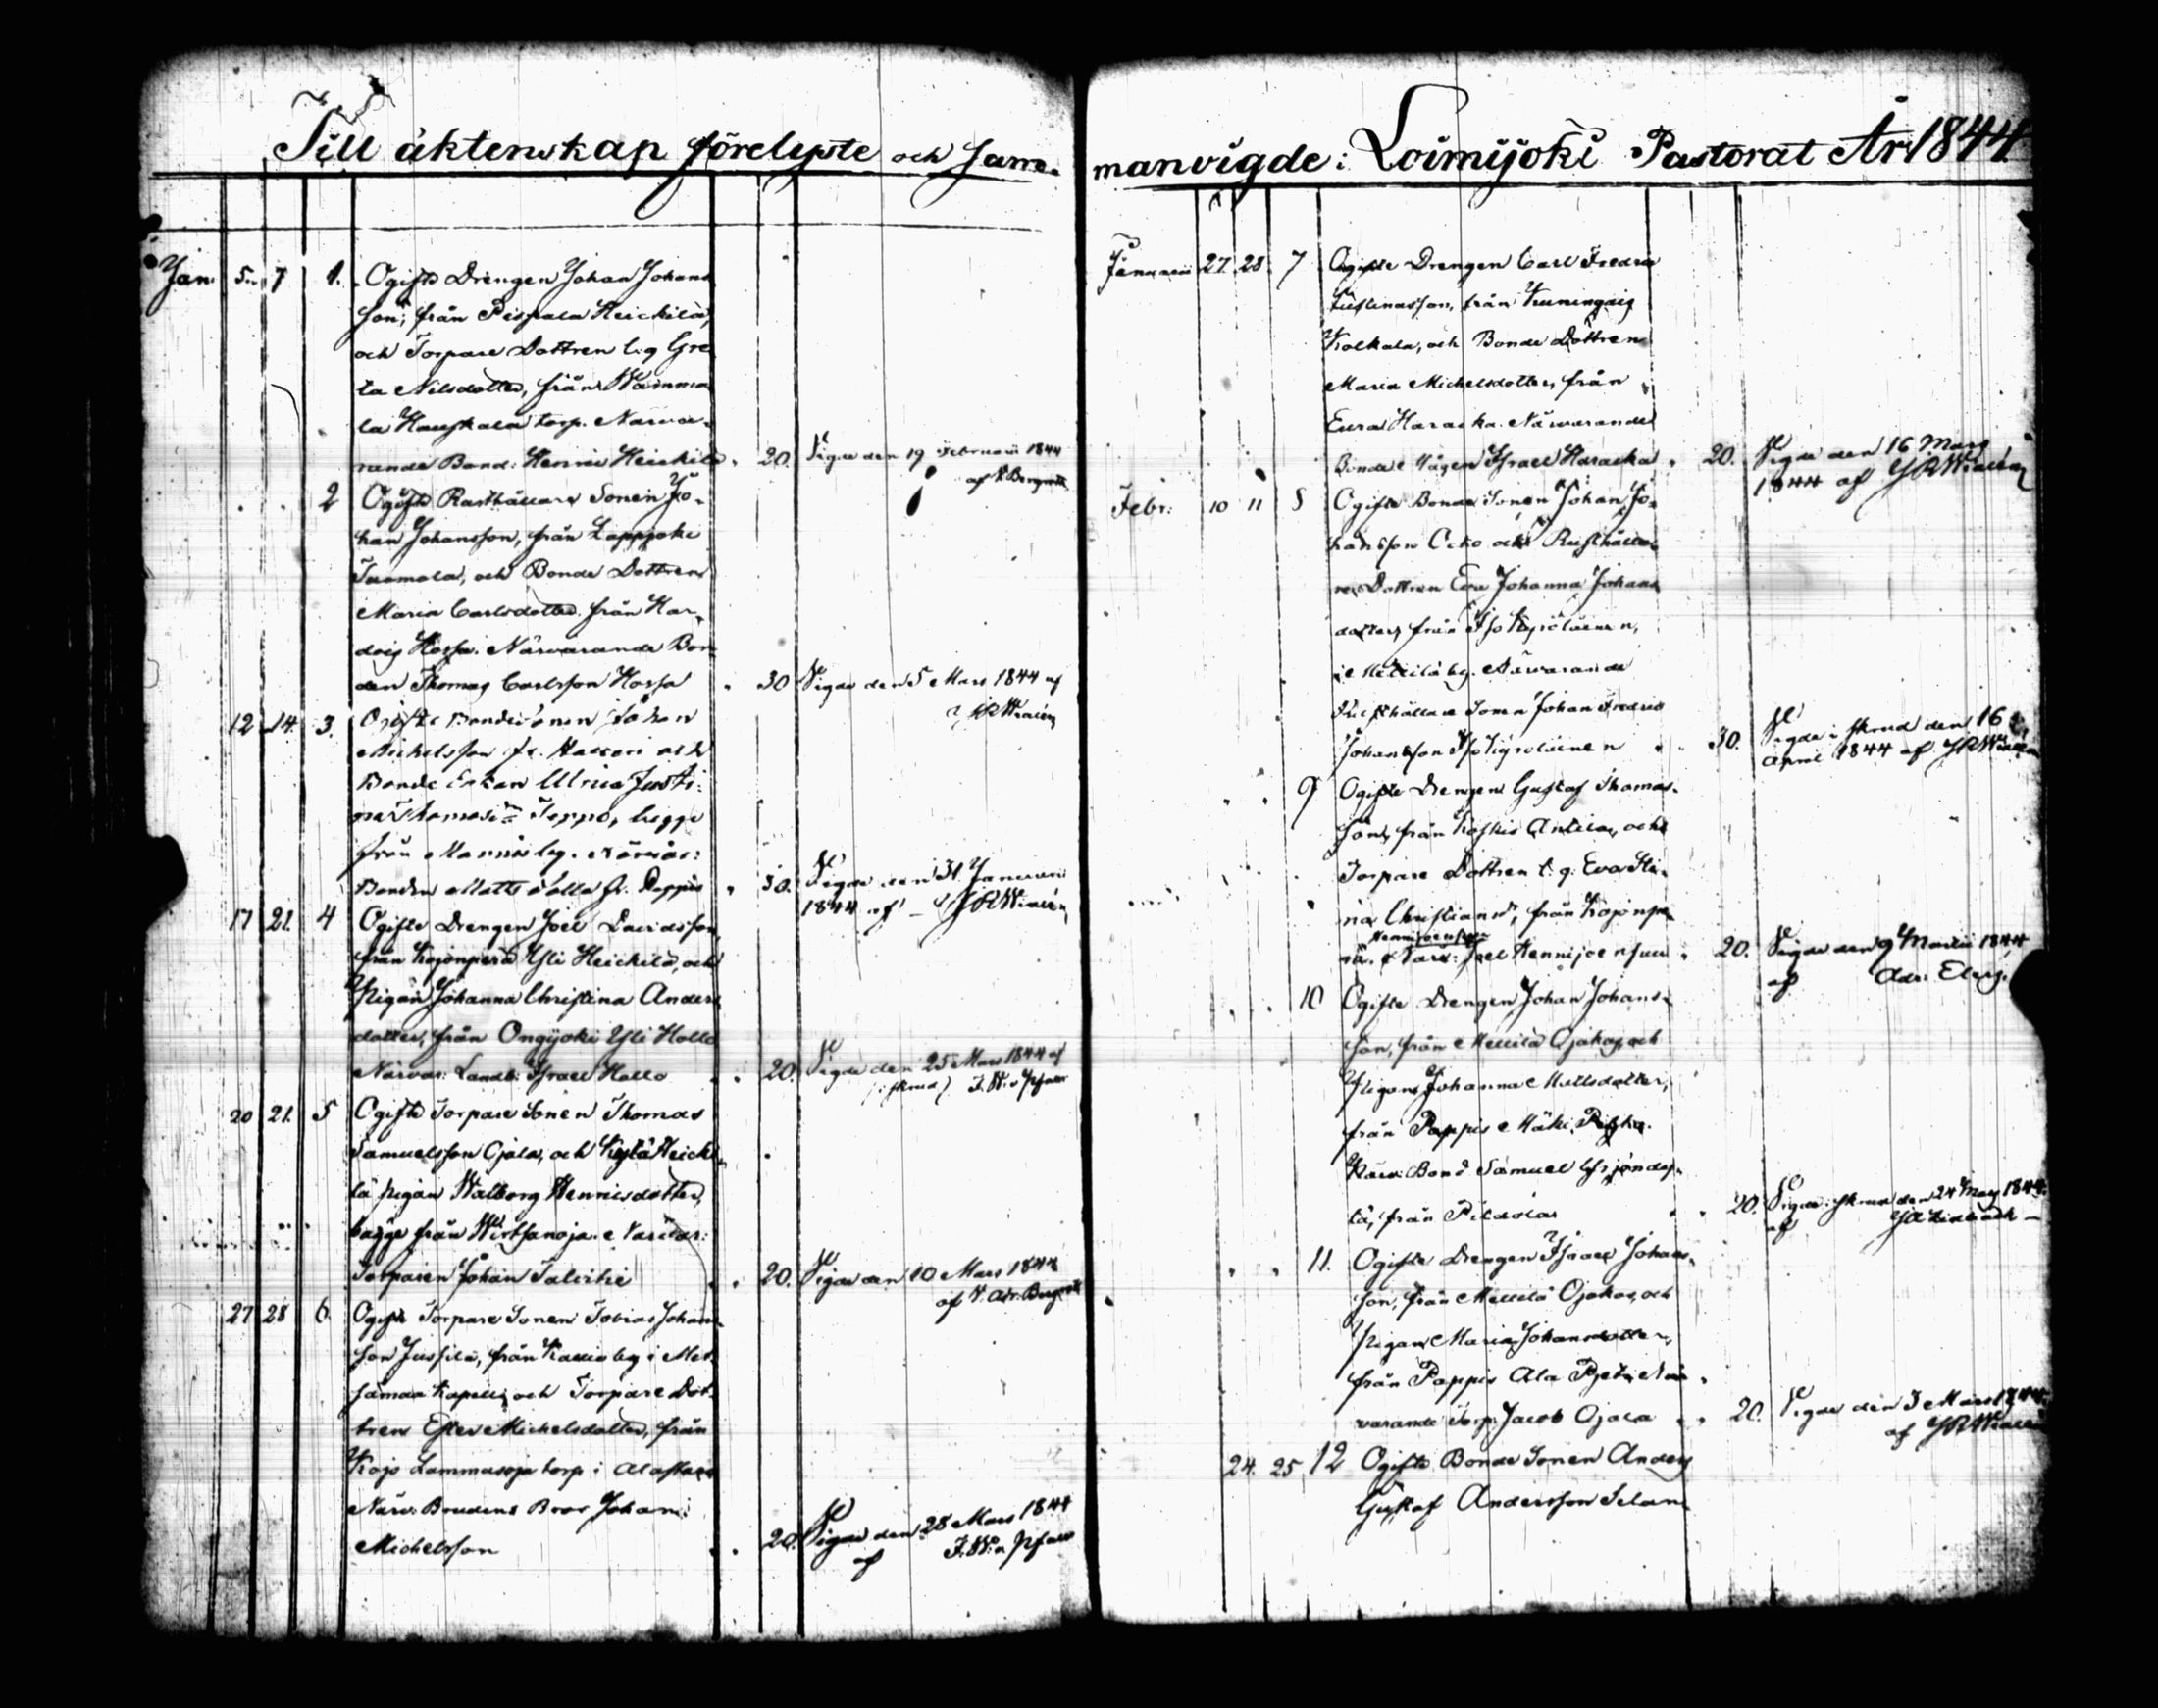 Till äktenskap förelyste och Sam-
Jan. 5. 7 1. Ogifte Drengen Johan Johans
son, från Pispala Heickilä,
och Torpare Dottren l:g Gre
ta Nilsdotter, från Wamma
la Hauskala torp. Närva-
rande Bond: Henric Heickilä 20. Vigde den 19 Februarii 1844
af Bergroth
2 Ogifte Rusthållare Sonen Jo-
han Johansson, från Lappjoki
Tuomola, och Bonde Dottren
Maria Carlsdotter från Har
doig Hossa. Närvarande Bon
den Thomas Carlsson Hossa 30 Vigde den 5 Mars 1844 af
JRWialén
12 14. 3. Ogifte Bonde Sonen Johan
Michelsson och
Bonde Enkan Ulrica Justi:
na Thomasd: Seppä, begge
från by. Närvar:
Bonden Matts 30. Vigde den 31 Januarii
1844 af JRWialén
17 21. 4 Ogifte Drengen Joel Davidsson
från Kojonperä Yli Heickilä, och
Pigan Johanna Christina Anders
dotter, från Ongijoki Yli Hollo
Närvar: Landb: Israel Hollo 20. Vigde den 25 Mars 1844 af
20 21. 5 Ogifte Torpare Sonen Thomas
Samuelsson Ojala, och Kylä Heicki
lä pigan Walborg Hennisdotter,
bägge från Wirtsanoja. Närvar:
Torparen Johan Talvitie 20. Vigde den 10 Mars 1844
27 28 6. Ogifte Torpare Sonen Tobias Johans
son Jussila, från by i Met
sämaa Kapell, och Torpare Dot
tren Ester Michelsdotter, från
Kojo Lammasoja torp i Alastaro
Närv: Brudens Bror Johan
Michelsson 20. Vigde den 28 Mars 1844
af
manvigde i Loimijoki Pastorat År 1844.
Januarii 27 28 7 Ogifte Drengen Carl Fredric
Justinasson, från Kuningais
Kolkala, och Bonde Dottren
Maria Michelsdotter, från
Eura Haracka. Närvarande
Bonde Mågen Israel Haracka 20. Vigde den 16 Mars
1844 af JRWialén
Febr: 10 11 8 Ogifte Bonde Sonen Johan Jo-
hansson Ocko och Rusthålla-
re Dottren Eva Johanna Johans
dotter, från Iso
i Mellilä by. Närvarande
Rusthållare Sonen Johan Fredric
Johansson Iso 30. Vigde i den 16
April 1844 af JRWialén
9 Ogifte Drengen Gustaf Thomas-
son, från Koskis Anttila, och
Torpare Dottren l:g. Eva Sti-
na Christiansd:, från Kojonpe
rä. Närv: Joel Hennijoensuu 20. Vigde den 9 Martii 1844
af Adr: Elvig.
10 Ogifte Drengen Johan Johans-
son, från Mellilä Ojakas, och
Pigan Johanna Mattsdotter,
från Pappis Mäki
Närv: Bond Samuel
lä, från 20. Vigde i den 24 Maij 1844.
af
11. Ogifte Drengen Israel Johans-
son, från Mellilä Ojakas, och
Pigan Maria Johansdotter,
från Pappis Ala När
varande Torp: Jacob Ojala 20. Vigde den 3 Mars 1844.
af JRWialén
24. 25 12 Ogifte Bonde Sonen Anders
Gustaf Andersson